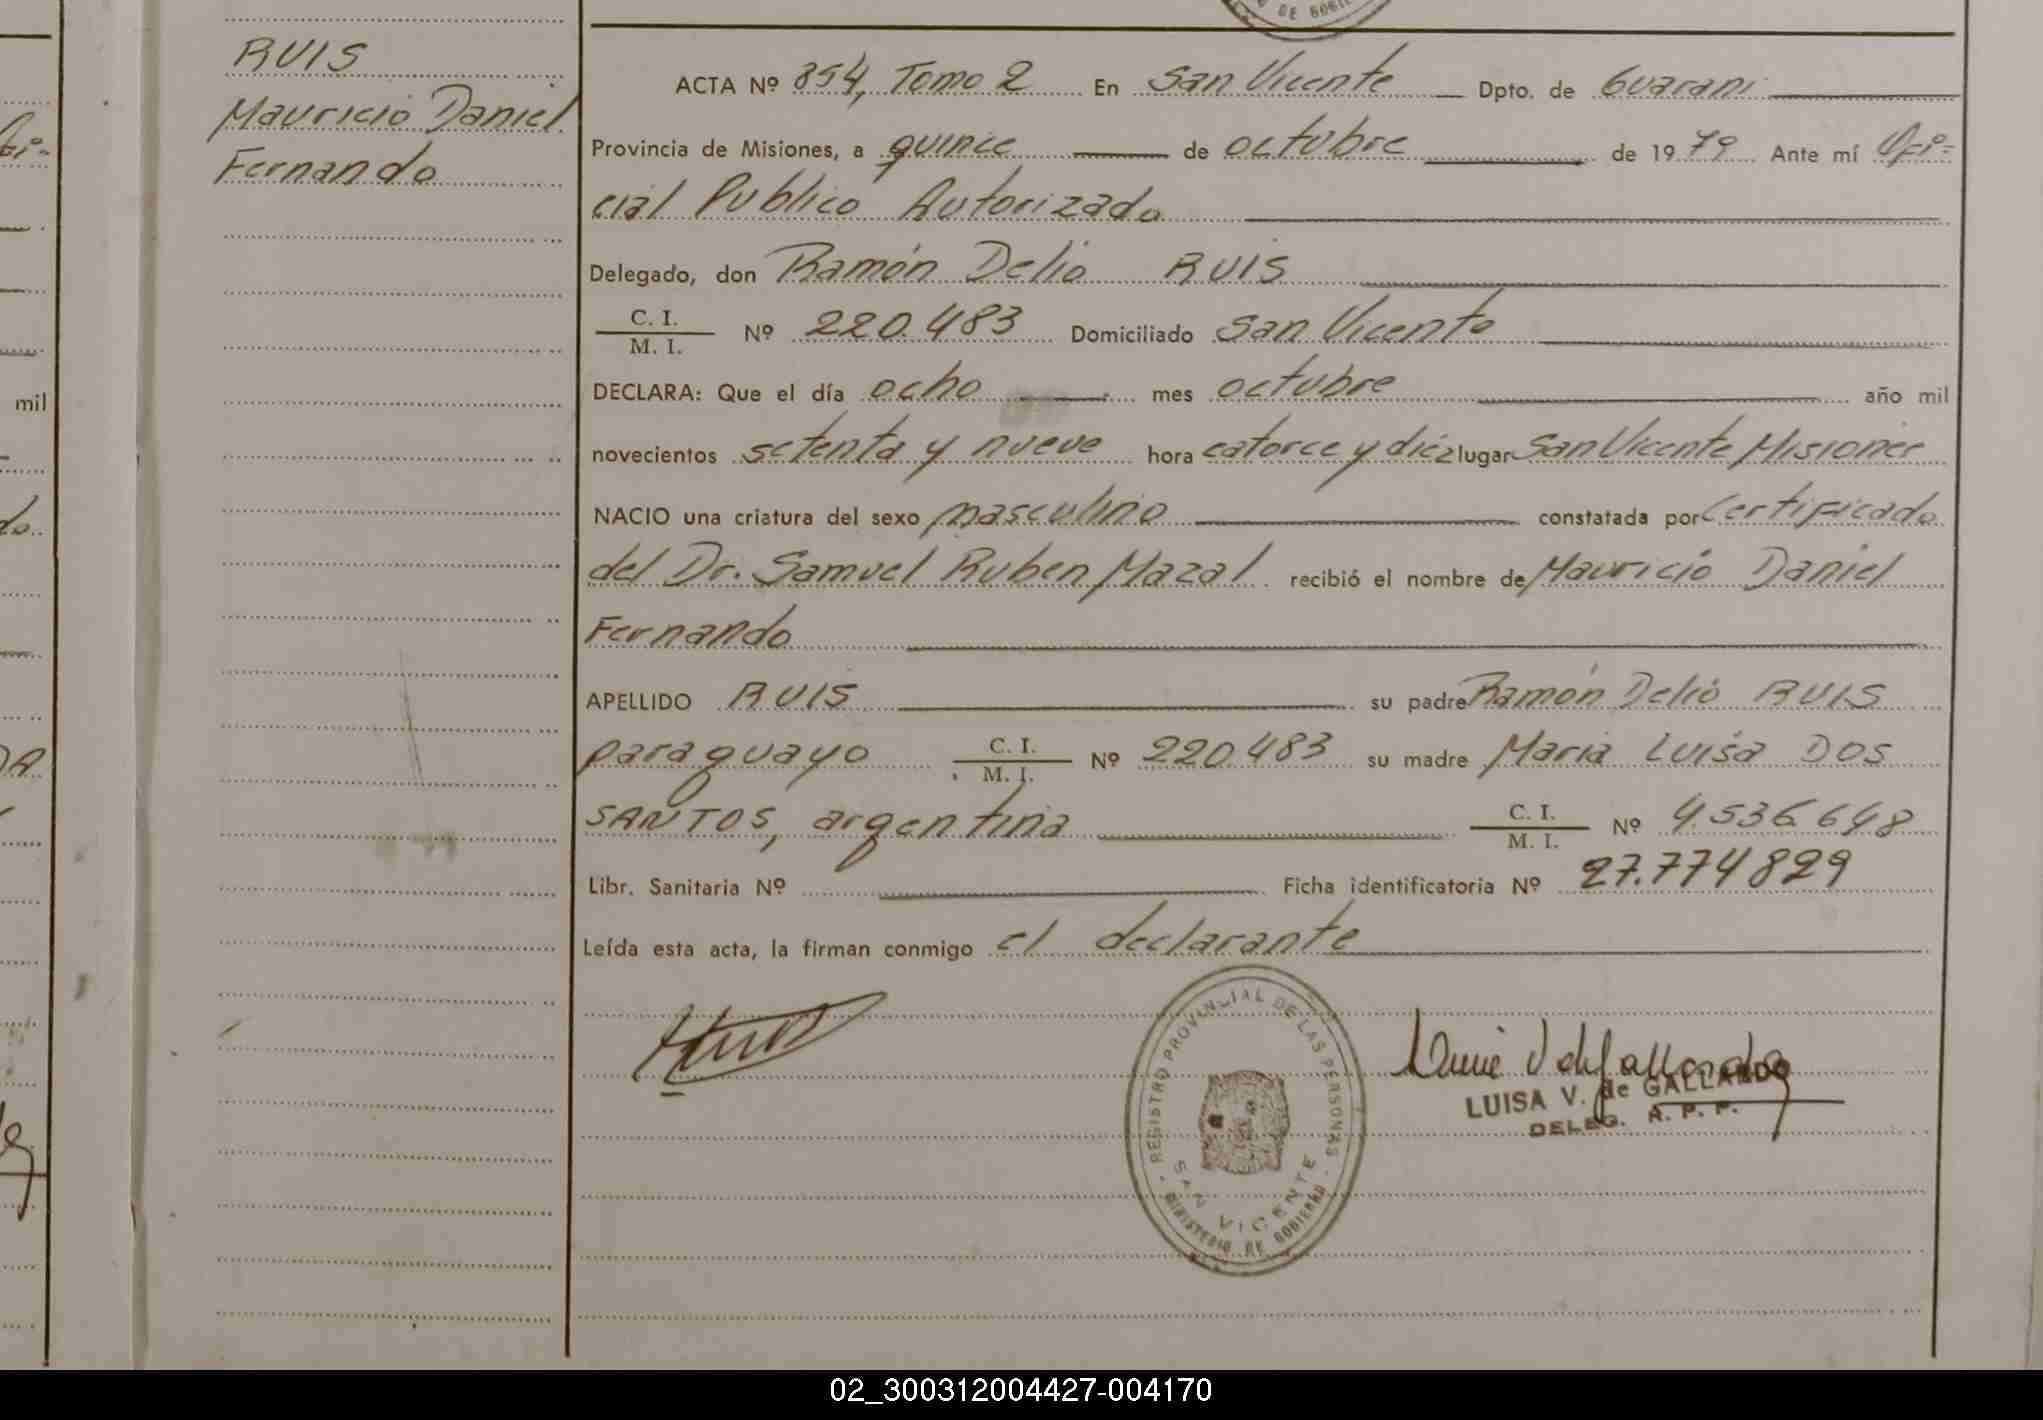 DE GOBIE
RUIS
Mauricio Daniel
Fernando
ACTA Nº 854, Tomo 2 En San Vicente Dpto. de Guarani
Provincia de Misiones, a quince de octubre de 1979 Ante mí Ofi-
cial Publico Autorizado
Delegado, don Ramón Delio RUIS
C. I.
M. I. Nº 220.483 Domiciliado San Vicente
DECLARA: Que el día ocho mes octubre año mil
novecientos setenta y nueve hora catorce y diéz lugar San Vicente Misiones
NACIO una criatura del sexo masculino constatada por Certificado
del Dr. Samuel Ruben Mazal recibió el nombre de Mauricio Daniel
Fernando
APELLIDO RUIS su padre Ramón Delio RUIS
paraguayo C. I.
M. I. Nº 220.483 su madre Maria Luisa DOS
SANTOS, argentina C. I.
M. I. Nº 4.536.648
Libr. Sanitaria Nº Ficha identificatoria Nº 27.774829
Leída esta acta, la firman conmigo el declarante
REGISTRO PROVINCIAL DE LAS PERSONAS
SAN VICENTE
MINISTERIO DE GOBIERNO
LUISA V. de GALLARDO
DELEG. R. P. P.
mil
02_300312004427-004170